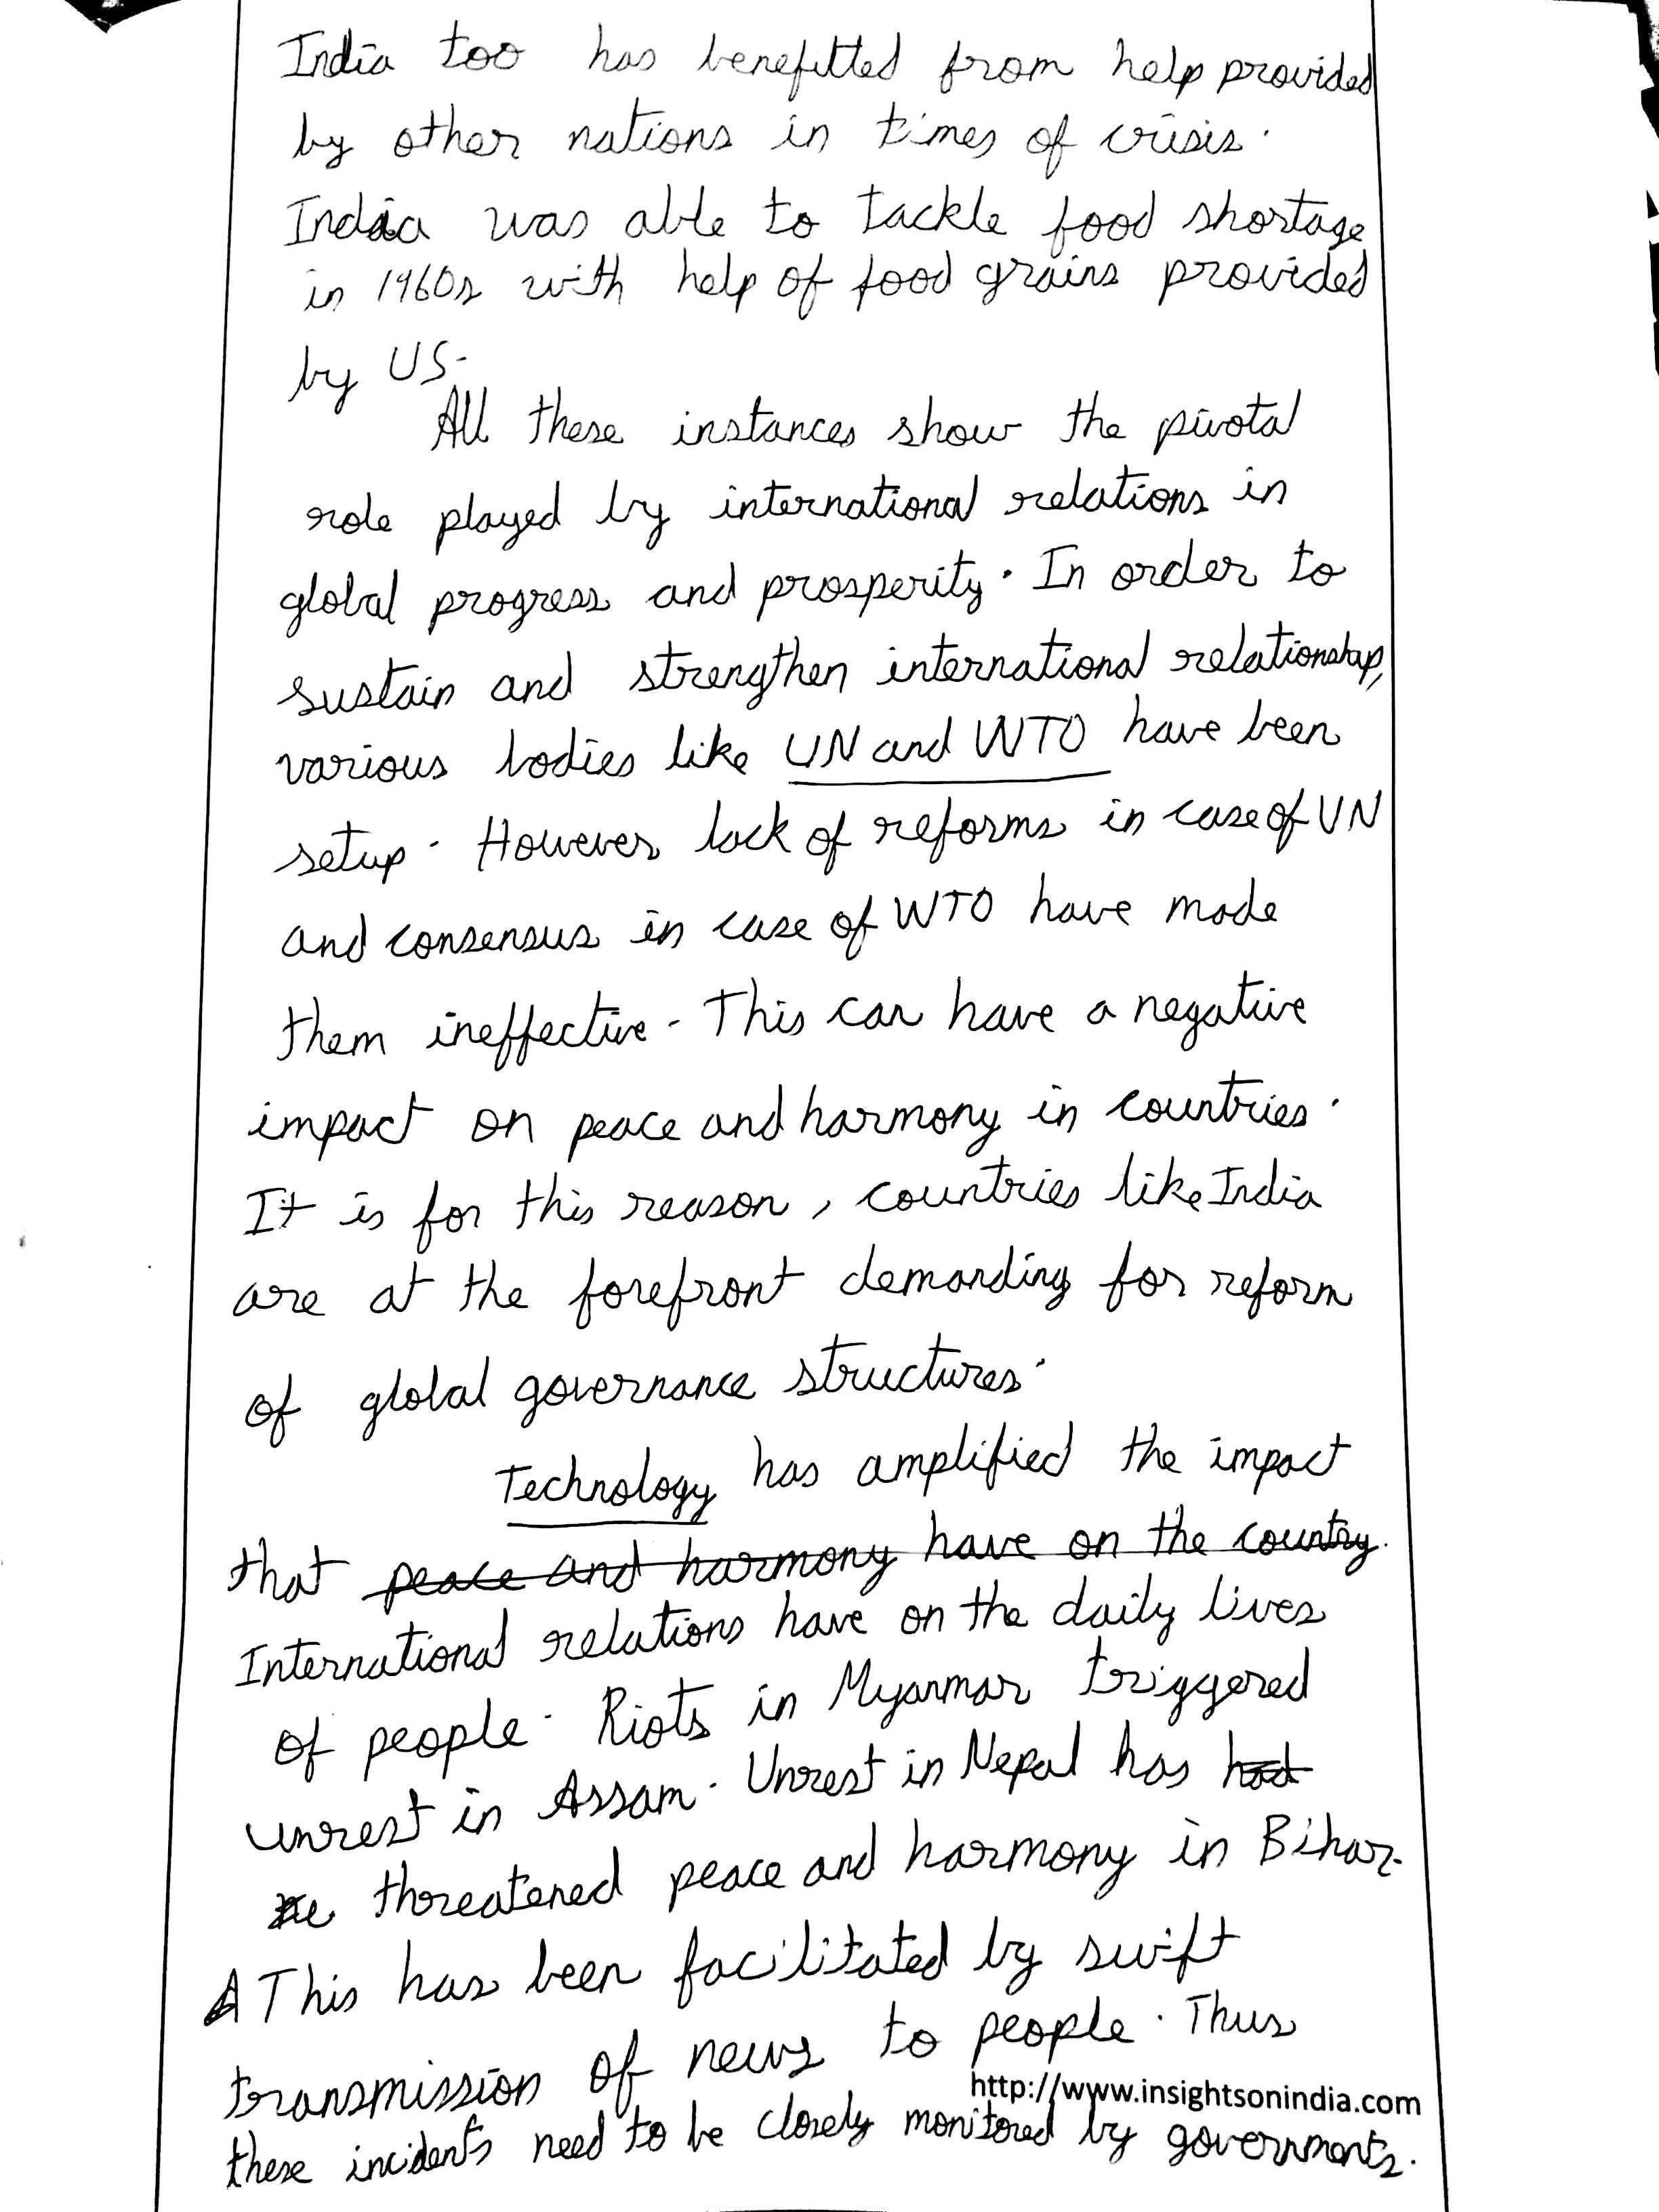 India too has benefitted from help provided
by other nations in times of crisis.
India was able to tackle food shortage
in 1960s with help of food grains provided
by US.
All these instances show the pivotal
role played by international relations in
global progress and prosperity. In order to
sustain and strengthen international relationship,
various bodies like UN and WTO have been
setup. However lack of reforms in case of UN
and consensus in case of WTO have made
them ineffective. This can have a negative
impact on peace and harmony in countries.
It is for this reason, countries like India
are at the forefront demanding for reform
of global governance structures.
Technology has amplified the impact
that peace and harmony have on the country.
International relations have on the daily lives
of people. Riots in Myanmar triggered
unrest in Assam. Unrest in Nepal has had
threatened peace and harmony in Bihar.
This has been facilitated by swift
transmission of news to people. Thus
http://www.insightsonindia.com
these incidents need to be closely monitored by governments.